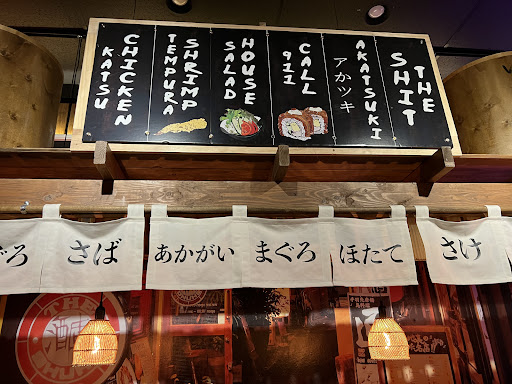 CHICKEN
KATSU
SHRIMP
TEMPURA
HOUSE
SALAD
CALL
911
AKATSUKI
アかツキ
THE
SHIT
ぐろ
さば
あかがい
まぐろ
ほたて
さけ
THE
酒